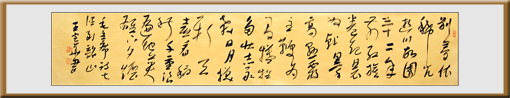 别梦依
稀咒
逝川故园
三十二年
前红旗
卷起农
奴戟黑手
高悬霸
主鞭为
有牺牲
多壮志
敢教日月换
新天
喜看稻
菽千重浪
遍地英
雄下夕烟
毛主席诗七
律到韶山